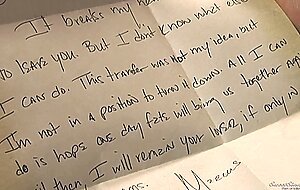 It breaks my
to leave you. But I don't know what else
I can do. This transfer was not my idea, but
I'm not in a position to turn it down. All I can
do is hope as day fate will bring us together
then, I will remain your loser, if only in
Marcus